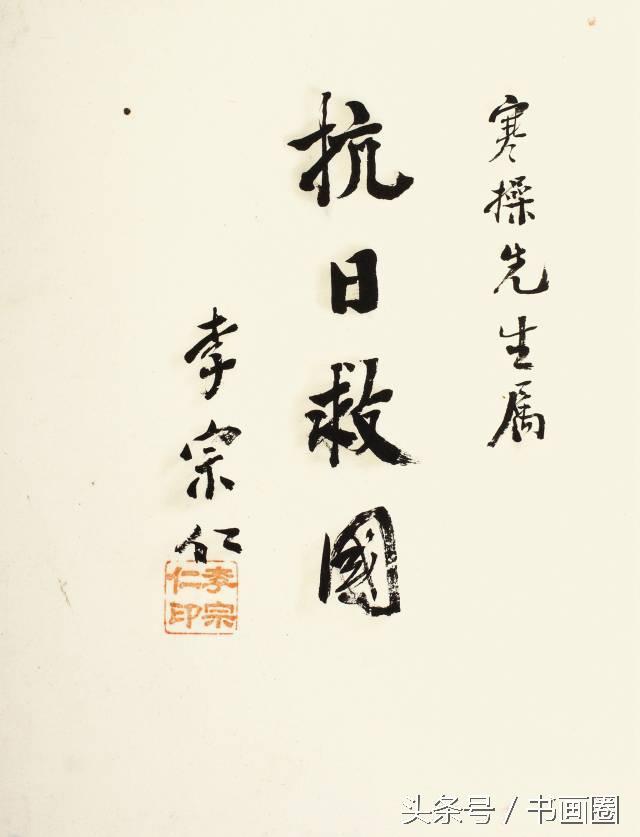 寒操先生属
抗日救國
李宗仁
李宗仁印
头条号 / 书画圈